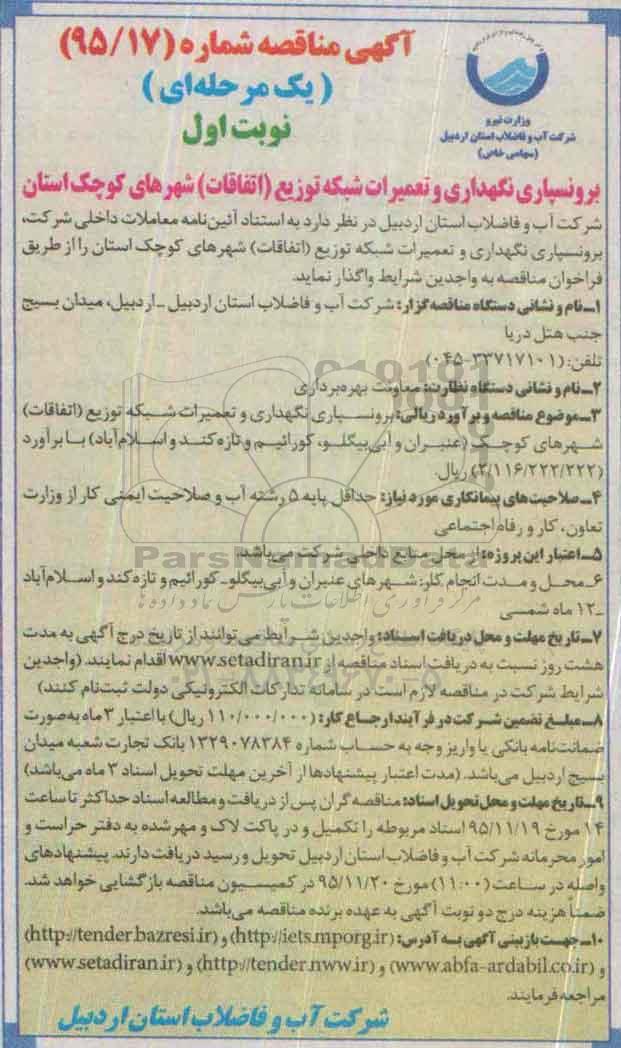 آگهی مناقصه شماره (۹۵/۱۷)
(یک مرحله‌ای)
نوبت اول
وزارت نیرو
شرکت آب و فاضلاب استان اردبیل
(سهامی خاص)
برونسپاری نگهداری و تعمیرات شبکه توزیع (اتفاقات) شهرهای کوچک استان
شرکت آب و فاضلاب استان اردبیل در نظر دارد به استناد آئین‌نامه معاملات داخلی شرکت،
برونسپاری نگهداری و تعمیرات شبکه توزیع (اتفاقات) شهرهای کوچک استان را از طریق
فراخوان مناقصه به واجدین شرایط واگذار نماید.
۱ـ نام و نشانی دستگاه مناقصه‌گزار: شرکت آب و فاضلاب استان اردبیل ـ اردبیل، میدان بسیج
جنب هتل دریا
تلفن: (۳۳۷۱۷۱۰۱-۰۴۵)
۲ـ نام و نشانی دستگاه نظارت: معاونت بهره‌برداری
۳ـ موضوع مناقصه و برآورد ریالی: برونسپاری نگهداری و تعمیرات شبکه توزیع (اتفاقات)
شهرهای کوچک (عنبران و آبی‌بیگلو، کورائیم و تازه‌کند و اسلام‌آباد) با برآورد
(۲/۱۱۶/۲۲۲/۲۲۲) ریال.
۴ـ صلاحیت‌های پیمانکاری مورد نیاز: حداقل پایه ۵ رشته آب و صلاحیت ایمنی کار از وزارت
تعاون، کار و رفاه اجتماعی
۵ـ اعتبار این پروژه: از محل منابع داخلی شرکت می‌باشد.
۶ـ محل و مدت انجام کار: شهرهای عنبران و آبی‌بیگلو ـ کورائیم و تازه‌کند و اسلام‌آباد
ـ ۱۲ ماه شمسی
۷ـ تاریخ مهلت و محل دریافت اسناد: واجدین شرایط می‌توانند از تاریخ درج آگهی به مدت
هشت روز نسبت به دریافت اسناد مناقصه از www.setadiran.ir اقدام نمایند. (واجدین
شرایط شرکت در مناقصه لازم است در سامانه تدارکات الکترونیکی دولت ثبت‌نام کنند)
۸ـ مبلغ تضمین شرکت در فرآیند ارجاع کار: (۱۱۰/۰۰۰/۰۰۰ ریال) با اعتبار ۳ ماه به‌صورت
ضمانت‌نامه بانکی یا واریز وجه به حساب شماره ۱۳۲۹۰۷۸۳۸۴ بانک تجارت شعبه میدان
بسیج اردبیل می‌باشد. (مدت اعتبار پیشنهادها از آخرین مهلت تحویل اسناد ۳ ماه می‌باشد)
۹ـ تاریخ مهلت و محل تحویل اسناد: مناقصه‌گران پس از دریافت و مطالعه اسناد حداکثر تا ساعت
۱۴ مورخ ۹۵/۱۱/۱۹ اسناد مربوطه را تکمیل و در پاکت لاک و مهرشده به دفتر حراست و
امور محرمانه شرکت آب و فاضلاب استان اردبیل تحویل و رسید دریافت دارند. پیشنهادهای
واصله در ساعت (۱۱:۰۰) مورخ ۹۵/۱۱/۲۰ در کمیسیون مناقصه بازگشایی خواهد شد.
ضمناً هزینه درج دو نوبت آگهی به عهده برنده مناقصه می‌باشد.
۱۰ـ جهت بازبینی آگهی به آدرس: (http://iets.mporg.ir) و (http://tender.bazresi.ir)
و (www.abfa-ardabil.co.ir) و (http://tender.nww.ir) و (www.setadiran.ir)
مراجعه فرمایند.
شرکت آب و فاضلاب استان اردبیل
ParsNamadData
مرکز فرآوری اطلاعات پارس نماد داده ها